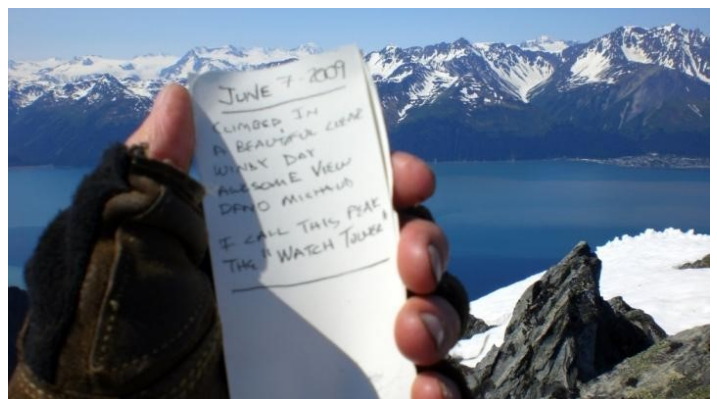 JUNE 7-2009
CLIMBED IN
A BEAUTIFUL CLEAR
WINDY DAY
AWESOME VIEW
DENO MICHAUD
I CALL THIS PEAK
THE "WATCH TOWER"